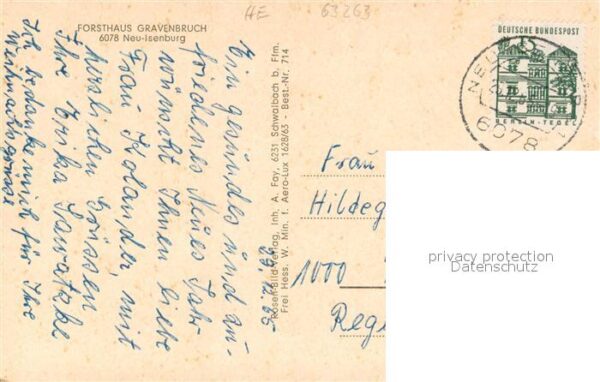 HE 63263
FORSTHAUS GRAVENBRUCH
6078 Neu-Isenburg
Ein gesundes und zu-
friedenes Neues Jahr
wünscht Ihnen liebe
Frau Holander, mit
herzlichen Grüssen
Ihre Erika Sawatzke
Ich bedanke mich für Ihre
Weihnachtsgrüsse
29.12.65
Rosen-Bild-Verlag, Inh. A. Fay, 6231 Schwalbach b. Ffm.
Frei Hess. W. Min. f. Aero-Lux 1628/63 - Best.-Nr. 714
DEUTSCHE BUNDESPOST
BERLIN-TEGEL
6078
Frau
Hildeg
1000
Rege
privacy protection
Datenschutz